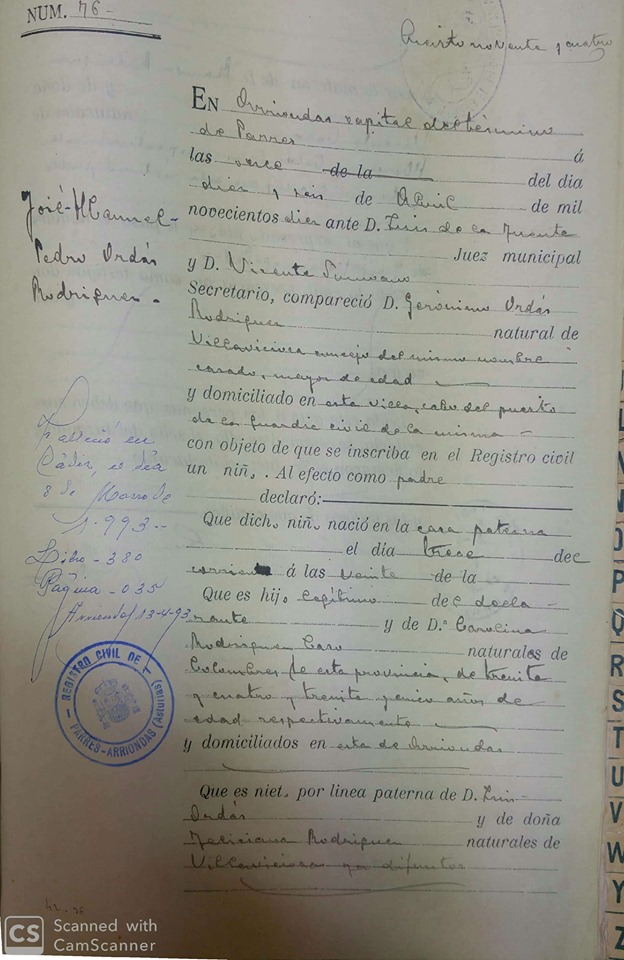 NUM. 76-
Cuarto noventa y cuatro
EN Arriondas capital del término
de Parres á
las once de la del dia
diez y seis de Abril de mil
novecientos diez ante D. Luis de la Fuente
Juez municipal
y D. Vicente
Secretario, compareció D. Gerónimo Ordás
Rodriguez natural de
Villaviciosa concejo del mismo nombre
casado, mayor de edad
y domiciliado en esta villa, cabo del puesto
de la Guardia civil de la misma -
con objeto de que se inscriba en el Registro civil
un niñ. . Al efecto como padre
declaró:
Que dich. niñ. nació en la casa paterna
el día trece del
corriente á las veinte de la
Que es hij. legítimo del decla-
rante y de D.ª Carolina
Rodriguez Caro naturales de
Colombres de esta provincia, de treinta
y cuatro y treinta y cinco años de
edad respectivamente
y domiciliados en esta de Arriondas
Que es niet. por linea paterna de D. Luis
Ordás y de doña
Feliciana Rodriguez naturales de
Villaviciosa ya difuntos
José-Manuel-
Pedro Ordás
Rodriguez -
Falleció en
Cádiz, el día
8 de Marzo de
1.993--
Libro - 380
Página - 035
Arriondas 13-4-93
REGISTRO CIVIL DE
PARRES-ARRIONDAS (Asturias)
L
N
O
P
Q
R
S
T
U
V
W
Y
Z
CS Scanned with
CamScanner